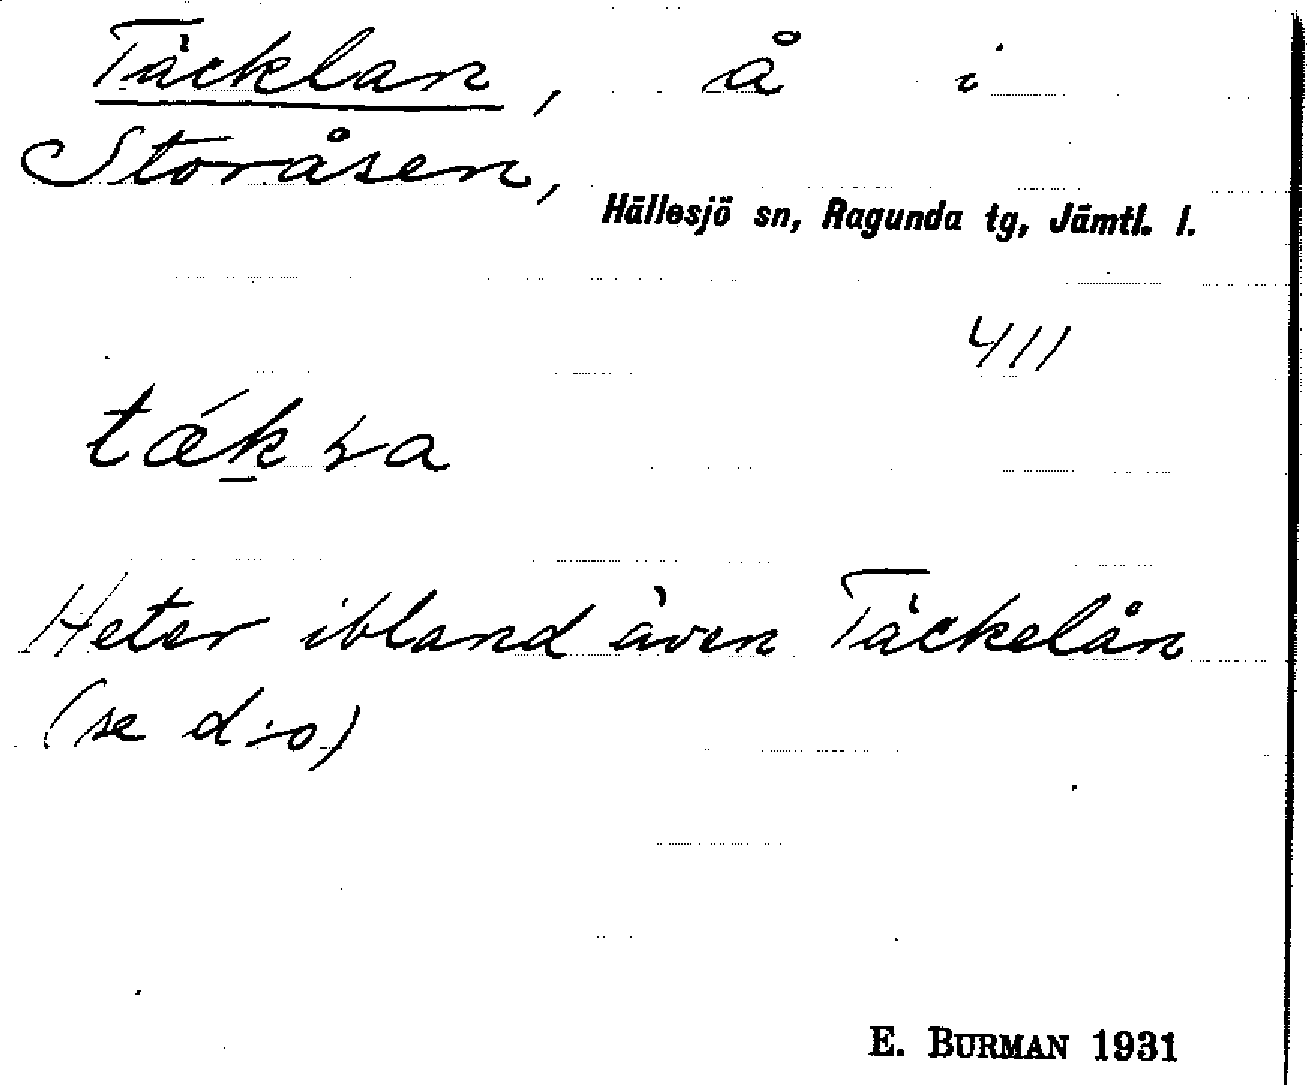 Täcklan, å i
Storåsen,
Hällesjö sn, Ragunda tg, Jämtl. l.
411
Heter ibland även Täckelån
(se d:o)
E. BURMAN 1931